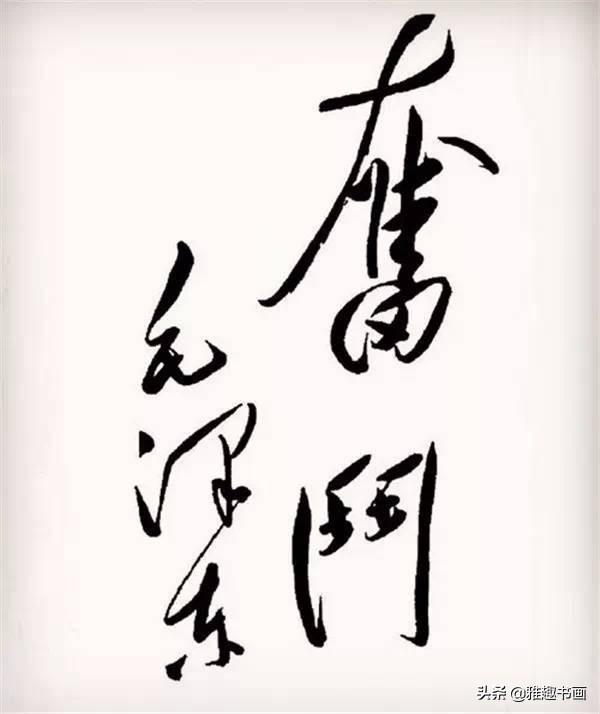 奮鬥
毛泽东
头条 @雅趣书画